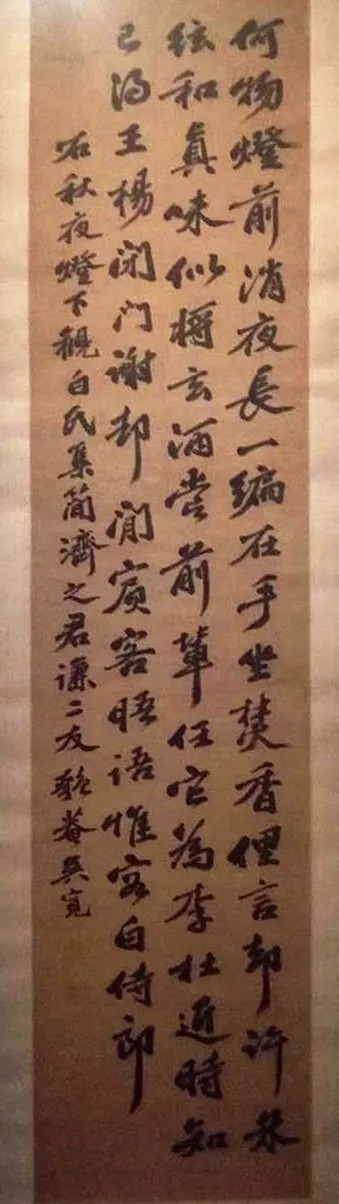 何物燈前消夜長一編在手坐焚香俚言却許朱
絃和真味似將玄酒嘗前輩任它為李杜通時知
已得王楊閉门謝却閒賓客晤語惟容白侍郎
右秋夜燈下觀白氏集簡濟之君謙二友匏菴吳寬